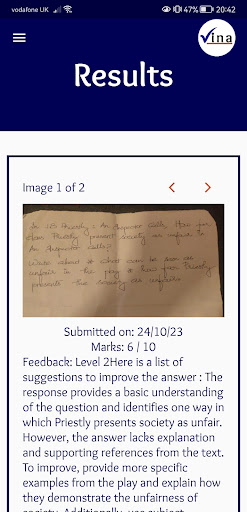 vodafone UK 47% 20:42
Vina
Results
Image 1 of 2
In J.B. Priestly: An Inspector Calls, How far
does Priestly present society as unfair in
An Inspector calls?
Write about: what can be seen as
unfair in the play & how far Priestly
presents the society as unfair
Submitted on: 24/10/23
Marks: 6 / 10
Feedback: Level 2Here is a list of
suggestions to improve the answer : The
response provides a basic understanding
of the question and identifies one way in
which Priestly presents society as unfair.
However, the answer lacks explanation
and supporting references from the text.
To improve, provide more specific
examples from the play and explain how
they demonstrate the unfairness of
society. Additionally, use subject